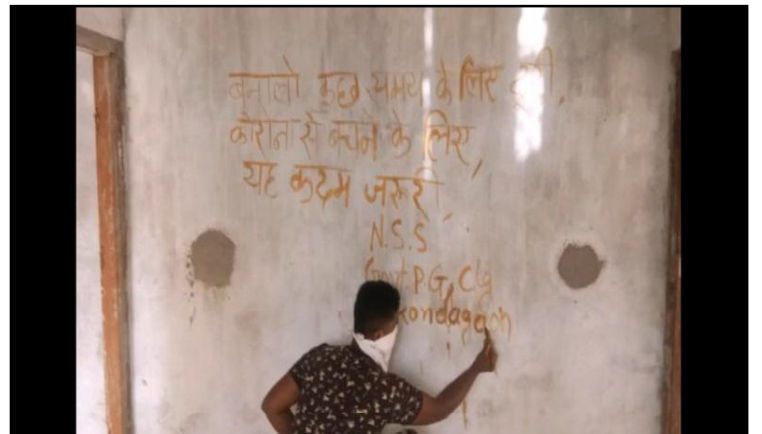 बनालो कुछ समय के लिए दूरी,
कोराना से बचने के लिए,
यह कदम जरूरी,
N.S.S
Govt P G, Clg
Kondagaon